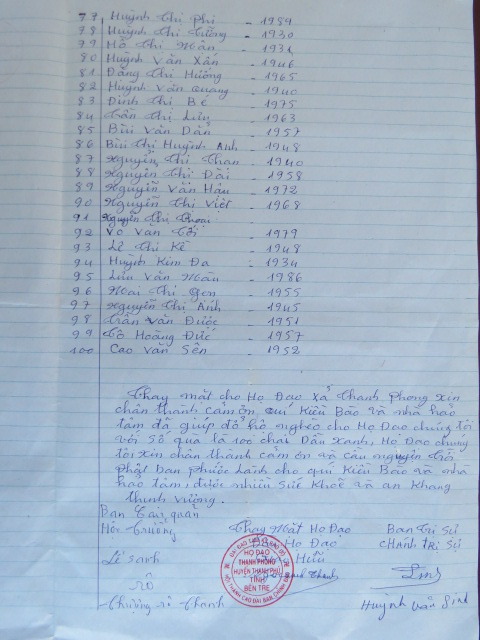 77 Huỳnh Thị Phi - 1984
78 Huỳnh Thị Tường - 1930
79 Hồ Thị Mân - 1931
80 Huỳnh Văn Xán - 1946
81 Đặng Thị Hương - 1965
82 Huỳnh Văn Quang - 1940
83 Đinh Thị Bé - 1975
84 Trần Thị Lựu - 1963
85 Bùi Văn Dần - 1957
86 Bùi Thị Huỳnh Anh - 1948
87 Nguyễn Thị Than - 1940
88 Nguyễn Thị Dài - 1958
89 Nguyễn Văn Hậu - 1972
90 Nguyễn Thị Viết - 1968
91 Nguyễn Thị Thoại
92 Võ Văn Tới - 1979
93 Lê Thị Kế - 1948
94 Huỳnh Kim Đa - 1934
95 Lưu Văn Mẫn - 1986
96 Mai Thị Gọn - 1955
97 Nguyễn Thị Ánh - 1945
98 Trần Văn Được - 1951
99 Cô Hoàng Đức - 1957
100 Cao Văn Sên - 1952
Thay mặt cho Họ Đạo Xã Thanh Phong xin
chân thành cảm ơn Quí Kiều Bào và nhà hảo
tâm đã giúp đỡ hộ nghèo cho Họ Đạo chúng tôi
với số quà là 100 chai Dầu xanh, Họ Đạo chúng
tôi xin chân thành cảm ơn và cầu nguyện Trời
Phật ban phước lành cho quí Kiều Bào và nhà
hảo tâm, được nhiều sức khoẻ và an khang
thịnh vượng.
Ban Cai quản
Hội Trưởng Thay Mặt Họ Đạo Ban Trị Sự
Họ Đạo Chánh Trị Sự
Lê Sanh Hữu
ĐẠI ĐẠO TAM KỲ PHỔ ĐỘ
HỌ ĐẠO
THẠNH PHONG
HUYỆN THẠNH PHÚ
TỈNH
BẾN TRE
Thanh Huỳnh Văn